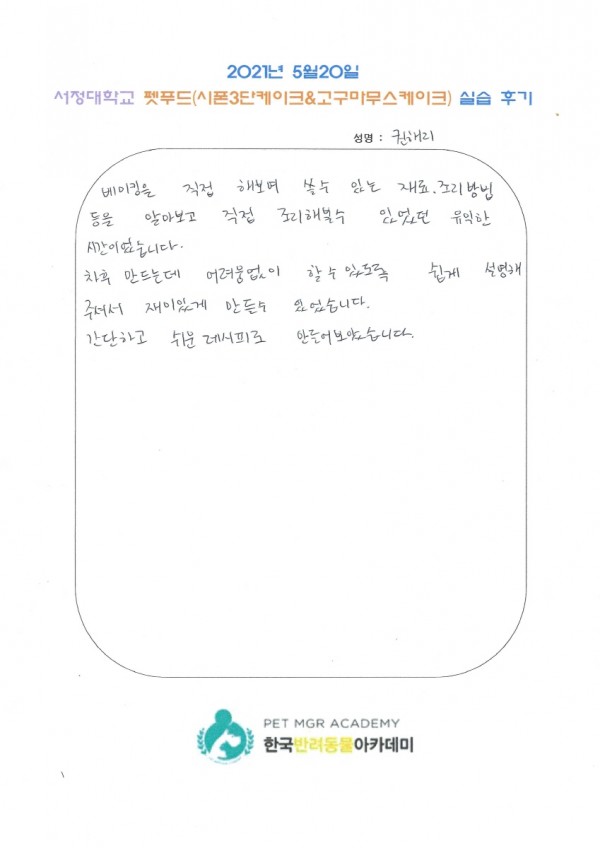 2021년 5월20일
서정대학교 펫푸드(시폰3단케이크&고구마무스케이크) 실습 후기
성명 : 권해리
베이킹을 직접 해보며 쓸수 있는 재료.조리방법
등을 알아보고 직접 조리해볼수 있었던 유익한
시간이었습니다.
차후 만드는데 어려움없이 할수있도록 쉽게 설명해
주셔서 재미있게 만들수 있었습니다.
간단하고 쉬운 레시피로 만들어보았습니다.
PET MGR ACADEMY
한국반려동물아카데미